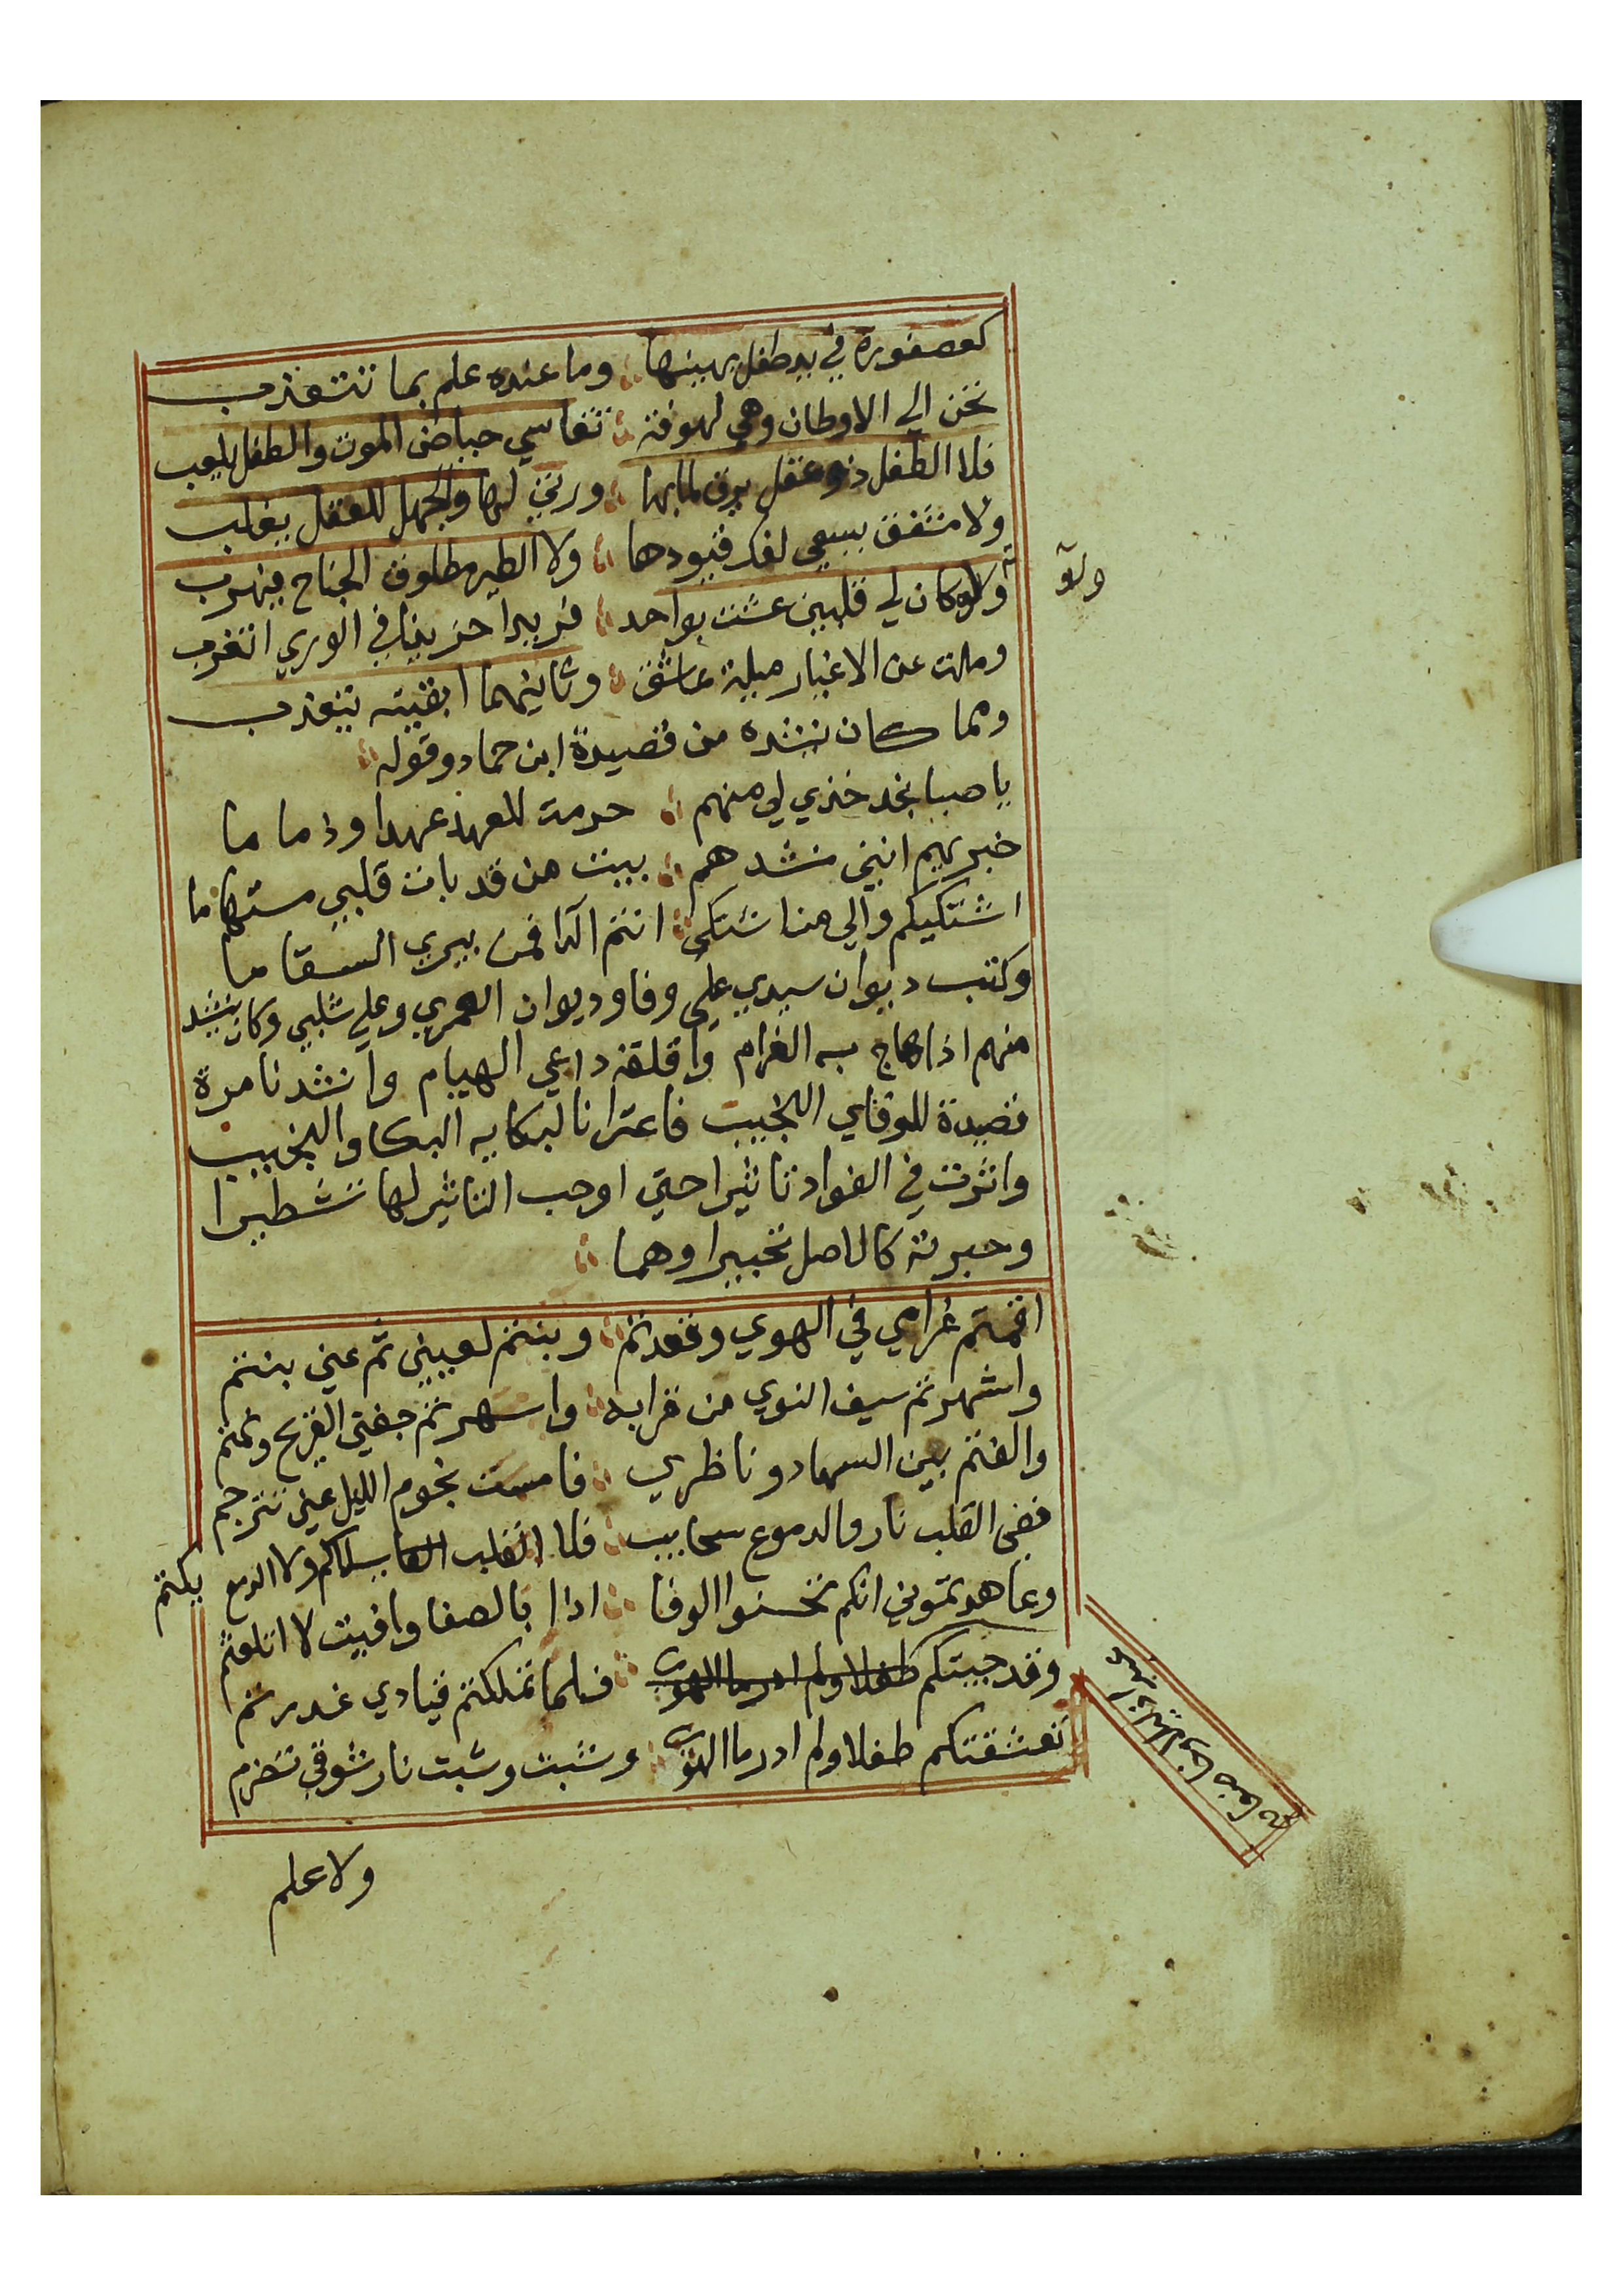 كعصفورة في يد طفل يهينها وما عنده علم بما تتعذب
تحن الي الاوطان وهي لهوفة تقاسي حياض الموت والطفل يلعب
فلا الطفل ذو عقل يرق لما بها ورثي لها والجهل للعقل يغلب
ولا مشفق يسعي لفك قيودها ولا الطير مطلوق الجناح فيهرب
ولو كان لي قلبين عشت بواحد فريدا حزينا في الوري اتغرب
ولو
وملت عن الاغيار ميلة عاشق وثانيهما ابقيته يتعذب
ومما كان ينشده من قصيدة ابن حماد وقوله
يا صبا نجد خذي لي منهم حرمت للعهد عهدا وذماما
خبريهم انني منشدهم ببيت من قد بات قلبي مستهاما
اشتكيكم والي من اشتكي انتم الدا فمن يبري السقاما
وكتب ديوان سيدي علي وفا وديوان العمري وعلي شلبي وكان ينشد
منهم اذا هاج به الغرام واقلقه داعي الهيام وانشدنا مرة
قصيدة للوفاي النجيب فاعترانا لبكايه البكا والنحيب
واثرت في الفواد تاثيرا حتي اوجب التاثير لها تشطيرا
وحبرته كالاصل تحبيرا وهما
اقمتم غرامي في الهوي وقعدتم وبنتم لعيني ثم عني بنتم
واشهرتم سيف النوي من قرابه واسهرتم جفني القريح ونمتم
والفتم بين السهاد وناظري فامست نجوم الليل عني تترجم
ففي القلب نار والدموع سحايب فلا القلب يسلاكم ولا الدمع يكتم
وعاهدتموني انكم تحسنوا الوفا اذا بالصفا وافيت لا اتلعثم
وقد جيتكم طفلا ولم ادر ما الهوي فلما تملكتم قيادي غدرتم
تعشقتكم طفلا ولم ادر ما الهوي وشبت وشبت نار شوقي تضرم
ولا علم